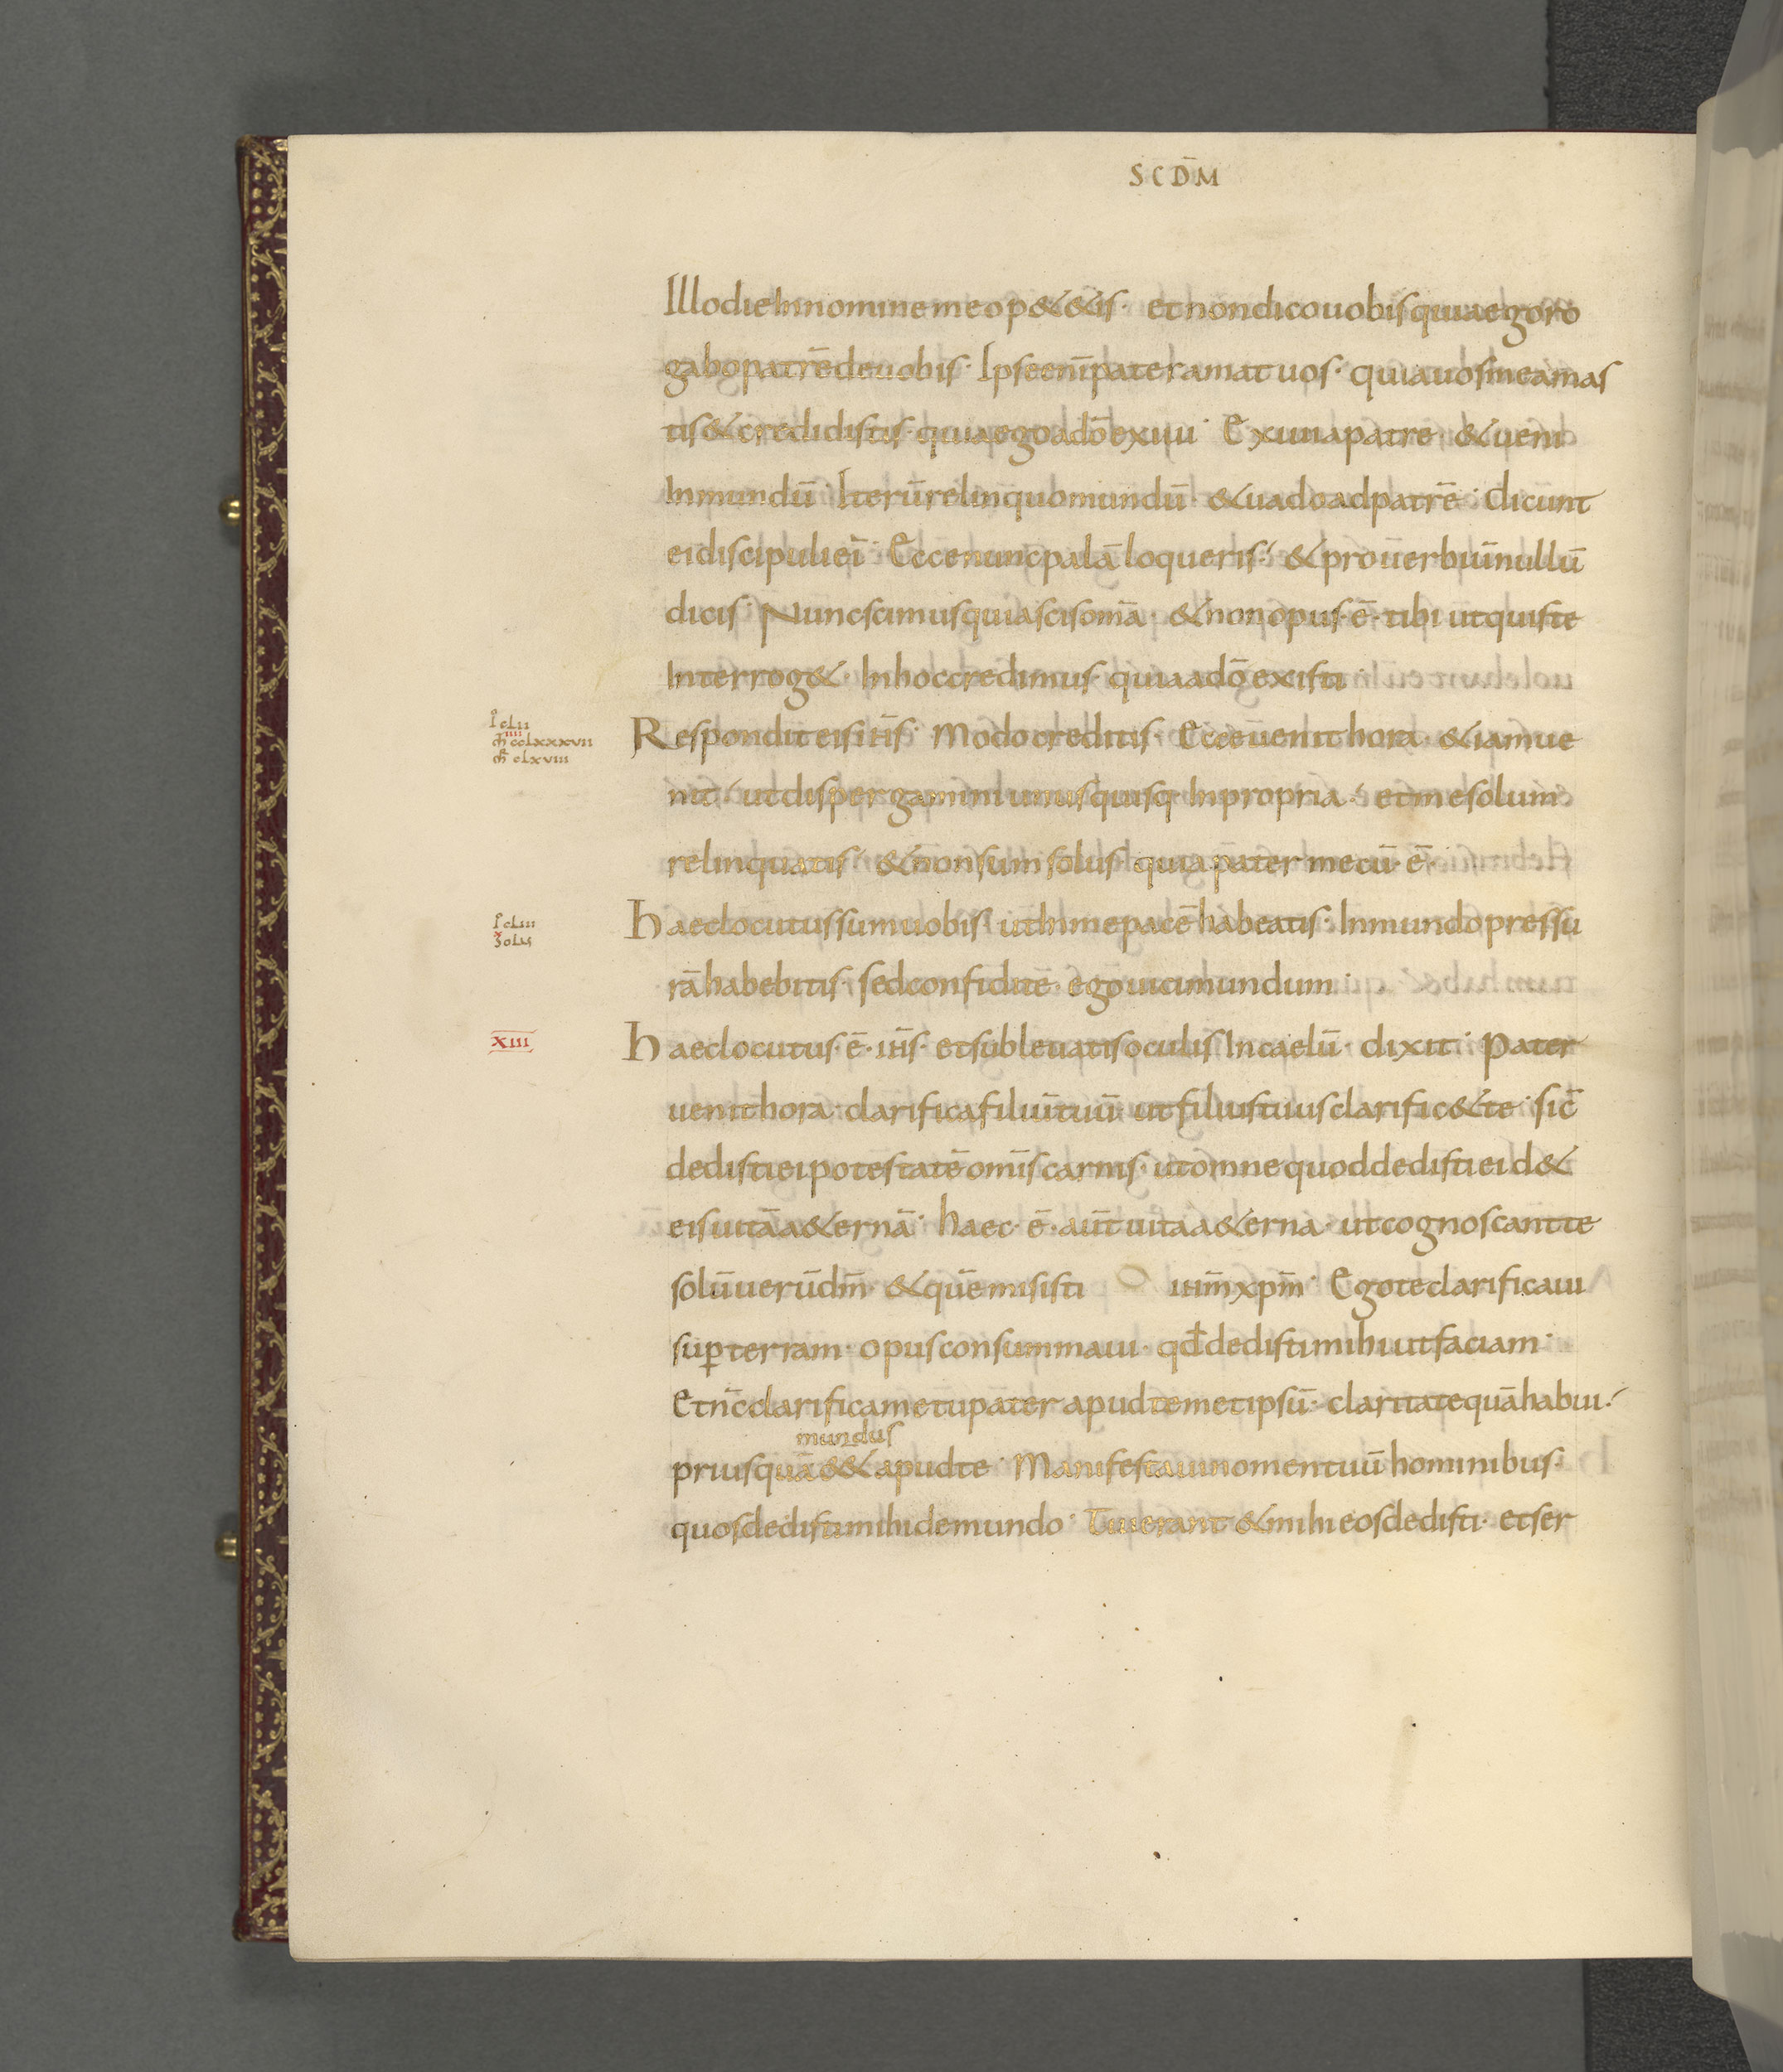 SCDM̄
Illo die In nomine meo p&&is · et non dico uobis quia ego ro
gabo patrē de uobis · Ipse enī pater amat uos · quia uos me amas
tis & credidistis · quia ego a dō exiui · Exii a patre · & ueni
In mundū · Iterū relinquo mundū · & uado ad patrē · Dicunt
ei discipuli ei · Ecce nunc palā loqueris · & prouerbiū nullū
dicis · Nunc scimus quia scis omā · & non opus · ē · tibi ut quis te
Interrog& · In hoc credimus · quia a dō existi ·
Lc clii
IIII
m̄ cclxxxvii
m̄r clxviii
Respondit eis ih̄s · Modo creditis · Ecce uenit hora · & iam ue
nit · ut dispergamini unusquisq In propria · et me solum
relinquatis · & non sum solus · quia pater mecū · ē ·
cliii
x
solus
Haec locutus sum uobis · ut In me pacē habeatis · In mundo pressu
rā habebitis · sed confidite · ego uici mundum ·
XIII
Haec locutus · ē · ih̄s · et subleuatis oculis In caelū · dixit · Pater
uenit hora · clarifica filiū tuū · ut filius tuus clarific& te · sic̄
dedisti ei potestatē omīs carnis · ut omne quod dedisti ei d&
eis uitā a&ernā · Haec · ē · aūt uita a&erna · ut cognoscant te
solū uerū dm̄ · & quē misisti ih̄m xp̄m · Ego te clarificaui
sup terram · opus consummaui · qd̄ dedisti mihi ut faciam ·
Et nc̄ clarifica me tu pater apud temetipsū · claritate quā habui ·
mundus
priusquā && apud te · Manifestaui nomen tuū hominibus ·
quos dedisti mihi de mundo · Tui erant & mihi eos dedisti · et ser